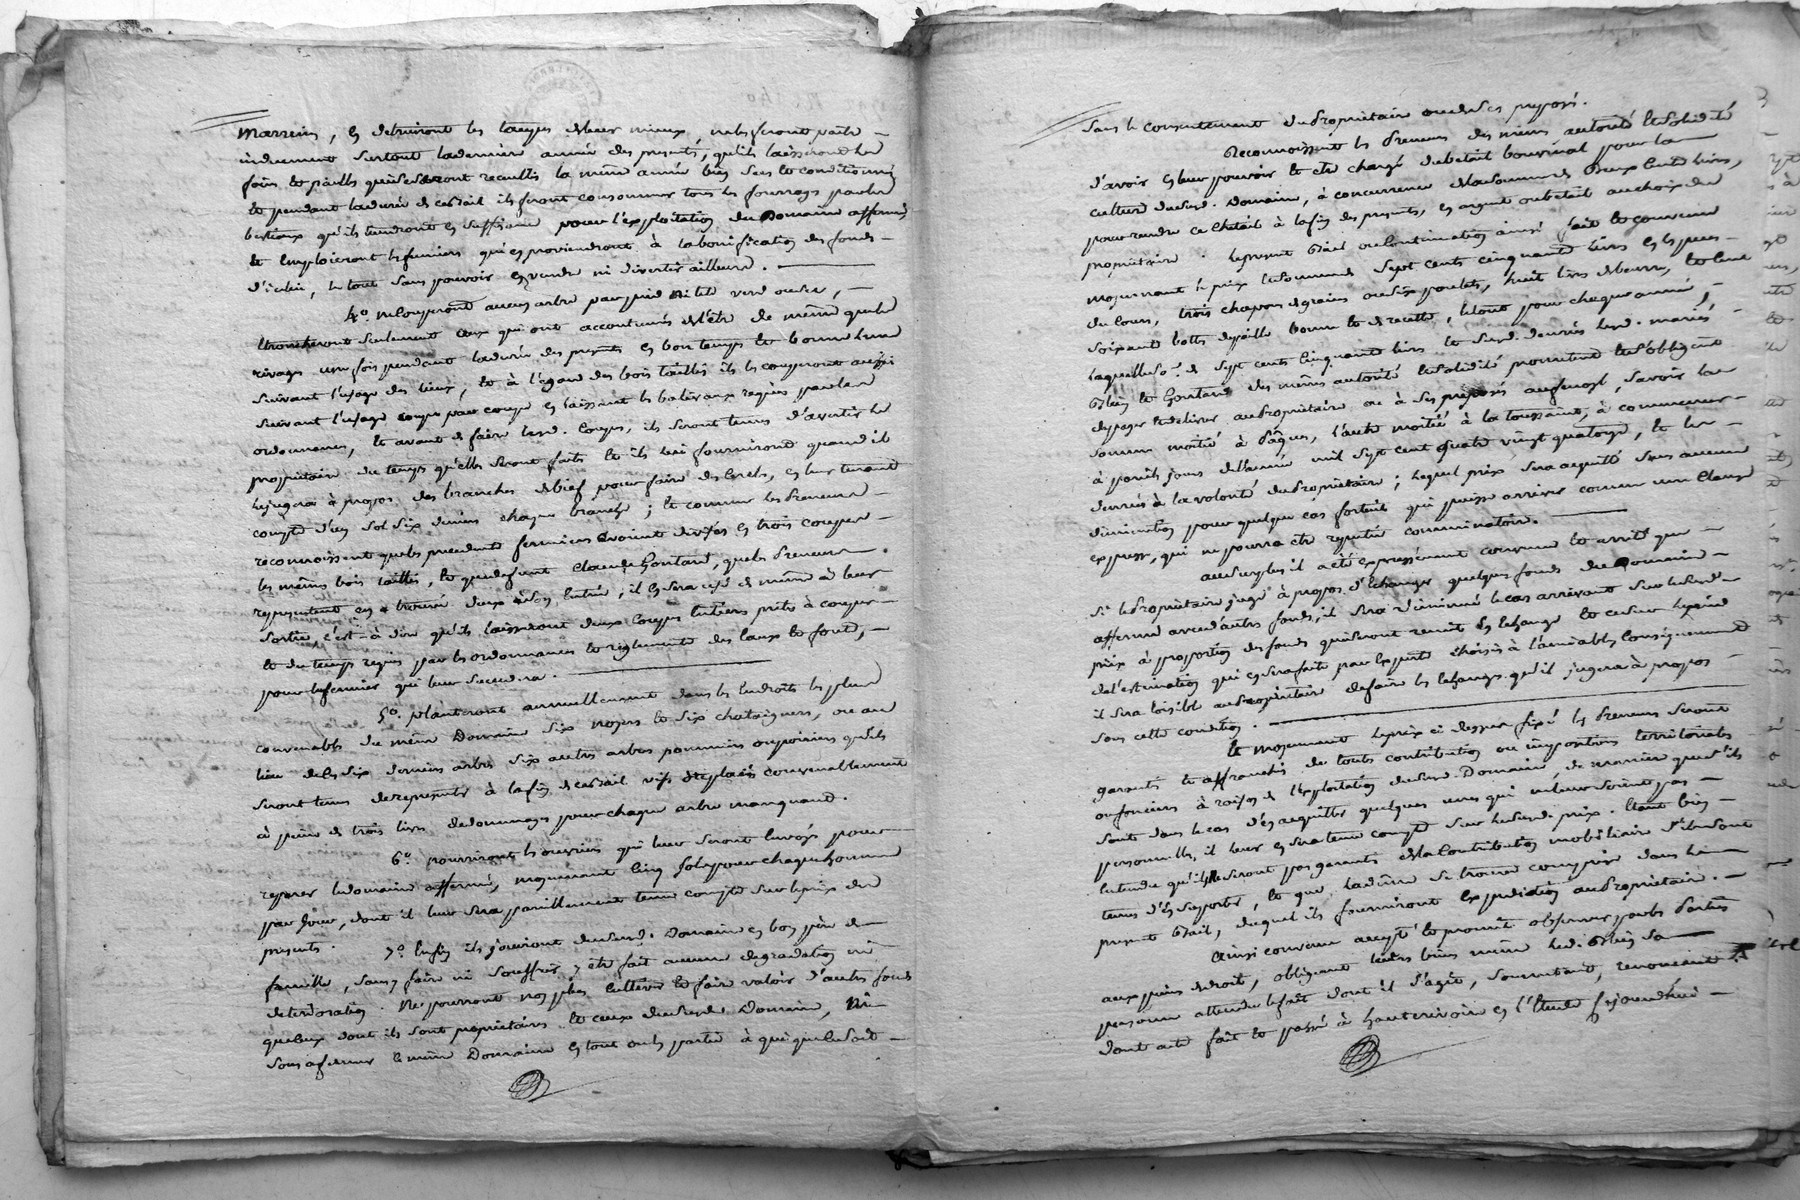 marreins, et detruiront les taupes de leur mieux, ne les feront paitre
induement surtout la derniere année des presentes, qu'ils laisseront les
foins et pailles qui se seront recueillis la même année bien secs et conditionnés
et pendant la durée de ce bail ils feront consommer tous les fourrages par les
bestiaux qu'ils tiendront en suffisance pour l'exploitation du Domaine affermé
et emploieront les fumiers qui en proviendront à la bonification des fonds
d'icelui, le tout sans pouvoir en vendre ni divertir ailleurs.
4o. ne couperont aucun arbre par pied ni tête verd ou sec,
ebrancheront seulement ceux qui ont accoutumés de l'être de même que les
rivages une fois pendant la durée des presentes en bon temps et bonne lune
suivant l'usage des lieux, et à l'égard des bois taillis ils les couperont aussi
suivant l'usage coupe par coupe en laissant les balivaux requis par les
ordonnances, et avant de faire lesd. coupes, ils seront tenus d'avertir le
propriétaire du temps qu'elles seront faites et ils lui fourniront quand il
le jugera à propos des branches de bief pour faire des cercles, en leur tenant
compte d'un sol six deniers chaque branche; et comme les Preneurs
reconnoissent que les precedents fermiers avoient divisés en trois coupes
les mêmes bois taillis, et que defunt Claude Gontard, que les Preneurs
representent en a trouvé deux à son entrée; il en sera usé de même à leur
sortie, c'est-à-dire qu'ils laisseront deux coupes entieres prêtes à couper
et du temps requis par les ordonnances et reglements des eaux et forêts,
pour le fermier qui leur succedera.
5o. planteront annuellement dans les endroits les plus
convenables du même Domaine six noyers et six chataigners, ou au
lieu de les six derniers arbres six autres arbres pommiers ou poiriers qu'ils
seront tenus de representer à la fin de ce bail vifs et placés convenablement
à peine de trois livres de dommages pour chaque arbre manquant.
6o. nourriront les ouvriers qui leur seront envoyés pour
reparer le domaine affermé, moyennant cinq sols pour chaque homme
par jour, dont il leur sera pareillement tenu compte sur le prix des
presentes.
7o. enfin ils jouiront dudit Domaine en bon père de
famille, sans y faire ni souffrir y être fait aucune degradation ni
deterioration. Ne pourront non plus cultiver et faire valoir d'autres fonds
que ceux dont ils sont proprietaires et ceux dudit Domaine, ni
sous affermer le même Domaine en tout ou en partie à qui que ce soit
sans le consentement du Proprietaire ou de ses preposés.
Reconnoissent les Preneurs des mêmes autorité et solidité
d'avoir en leur pouvoir et être chargé du betail bouvinal pour la
culture dudit Domaine, à concurrence de la somme de Deux cents livres,
pour rendre ce chetail à la fin des presentes, en argent ou betail au choix du
proprietaire. le present Bail ou continuation ainsi fait et convenu
moyennant le prix et somme de Sept cents cinquante livres en especes
du cours, trois chapons de graisse ou six poulets, huit livres de beurre, et cent
soixante bottes de paille bonne et de recette, le tout pour chaque année,
laquelle so.e de sept cents cinquante livres et les susd. denrées lesd. mariés
Blein et Gontard des mêmes autorité et solidité promettent et s'obligent
de payer et delivrer au Proprietaire ou à ses preposés aux presentes, savoir la
somme moitié à Pâques, l'autre moitié à la toussaints, à commencer
à pareils jours de l'année mil sept cent quatre vingt quatorze, et les
denrées à la volonté du Proprietaire; lequel prix sera acquitté sans aucune
diminution pour quelque cas fortuit qui puisse arriver comme une clause
expresse, qui ne pourra être reputée comminatoire.
au surplus il a été expressement convenu et arrêté que
si le Proprietaire juge à propos d'échanger quelques fonds du Domaine
affermé avec d'autres fonds, il sera diminué le cas arrivant sur le susd.
prix à proportion des fonds qui seront remis en echange et ce sur le pied
de l'estimation qui en sera faite par experts choisis à l'amiable, consequemment
il sera loisible au Proprietaire de faire les echanges qu'il jugera à propos
sous cette condition.
Et moyennant le prix ci dessus fixé les Preneurs seront
garants et affranchis de toute contribution ou imposition territoriales
ou foncieres à raison de l'exploitation dudit Domaine, de maniere que s'ils
sont dans le cas d'en acquitter quelques unes qui ne leur seroient pas
personnelles, il leur en sera tenu compte sur le susdit prix. Etant bien
entendu qu'ils ne seront pas garants de la contribution mobiliaire s'ils sont
tenus d'en supporter, et que la dîme se trouve comprise dans le
present Bail, duquel ils fourniront expedition au Proprietaire.
Ainsi convenu accepté et promis observer par les Parties
aux peines de droit, obligeant leurs biens même led. Blein sa
personne attendu le fait dont il s'agit, soumettant, renonceant &a
dont acte fait et passé à hauterivoire en l'Etude, ce jourd'hui